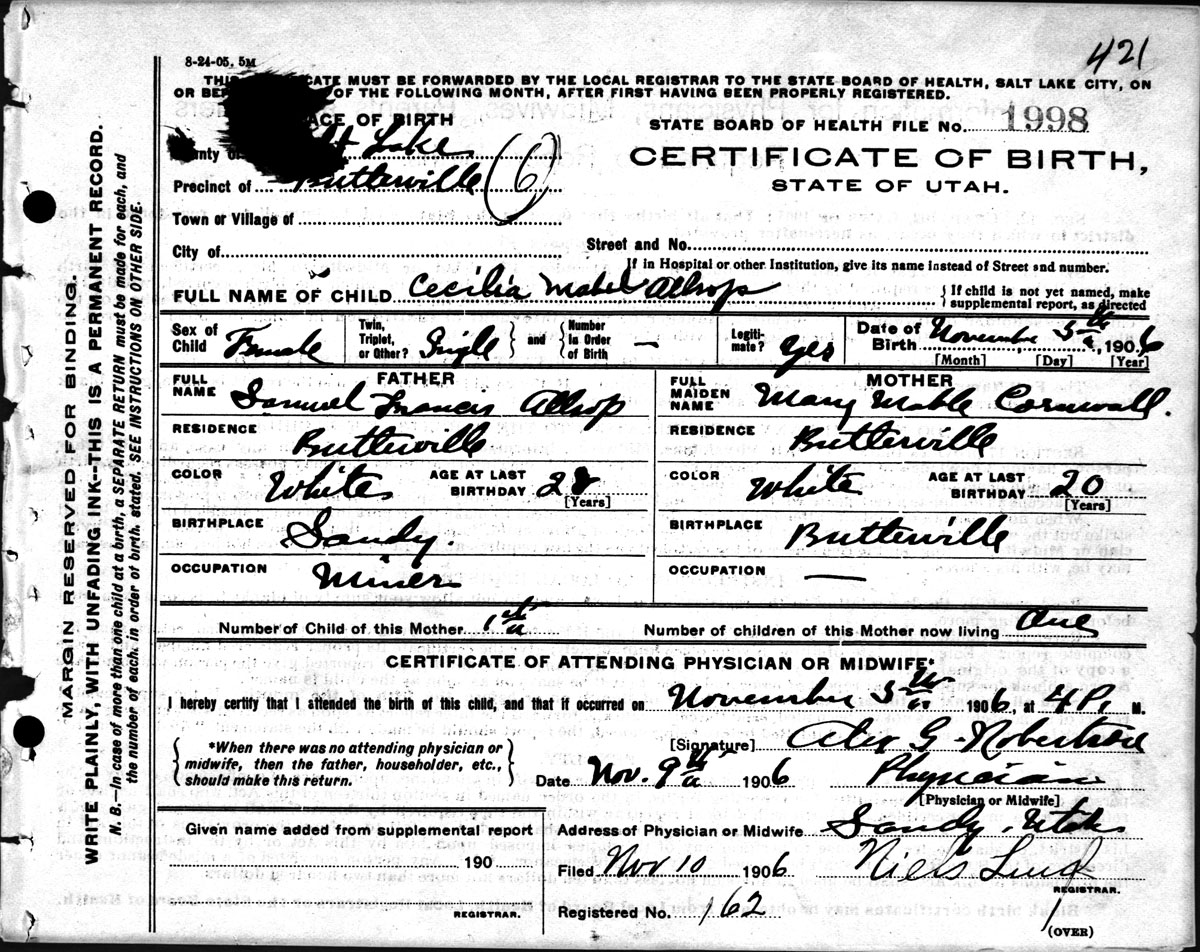 421
8-24-05. 5M
THIS CATE MUST BE FORWARDED BY THE LOCAL REGISTRAR TO THE STATE BOARD OF HEALTH, SALT LAKE CITY, ON
OR BEF OF THE FOLLOWING MONTH, AFTER FIRST HAVING BEEN PROPERLY REGISTERED.
ACE OF BIRTH
STATE BOARD OF HEALTH FILE No. 1998
ounty of t Lake
CERTIFICATE OF BIRTH,
Precinct of Butlerville (6)
STATE OF UTAH.
Town or Village of
City of
Street and No.
If in Hospital or other Institution, give its name instead of Street and number.
FULL NAME OF CHILD Cecilia Mabel Allsop
{ If child is not yet named, make
supplemental report, as directed
Sex of Child Female
Twin, Triplet, or Other? Single } and { Number In Order of Birth —
Legiti-mate? Yes
Date of Birth November 5th, 1906
[Month] [Day] [Year]
FATHER
FULL NAME Samuel Francis Allsop
RESIDENCE Butlerville
COLOR White AGE AT LAST BIRTHDAY 28 [Years]
BIRTHPLACE Sandy.
OCCUPATION Miner
MOTHER
FULL MAIDEN NAME Mary Mable Cornwall.
RESIDENCE Butlerville
COLOR White AGE AT LAST BIRTHDAY 20 [Years]
BIRTHPLACE Butlerville
OCCUPATION —
Number of Child of this Mother 1st Number of children of this Mother now living One
CERTIFICATE OF ATTENDING PHYSICIAN OR MIDWIFE*
I hereby certify that I attended the birth of this child, and that if occurred on November 5th 1906, at 4 P. M.
{ *When there was no attending physician or
midwife, then the father, householder, etc.,
should make this return. }
[Signature] Alex G. Robertson
Date Nov. 9th 1906 Physician
[Physician or Midwife]
Given name added from supplemental report
190
REGISTRAR.
Address of Physician or Midwife Sandy, Utah
Filed Nov 10 1906 Niels Lind
REGISTRAR.
Registered No. 162
1
(OVER)
MARGIN RESERVED FOR BINDING.
WRITE PLAINLY, WITH UNFADING INK--THIS IS A PERMANENT RECORD.
N. B.—In case of more than one child at a birth, a SEPARATE RETURN must be made for each, and
the number of each, in order of birth, stated. SEE INSTRUCTIONS ON OTHER SIDE.